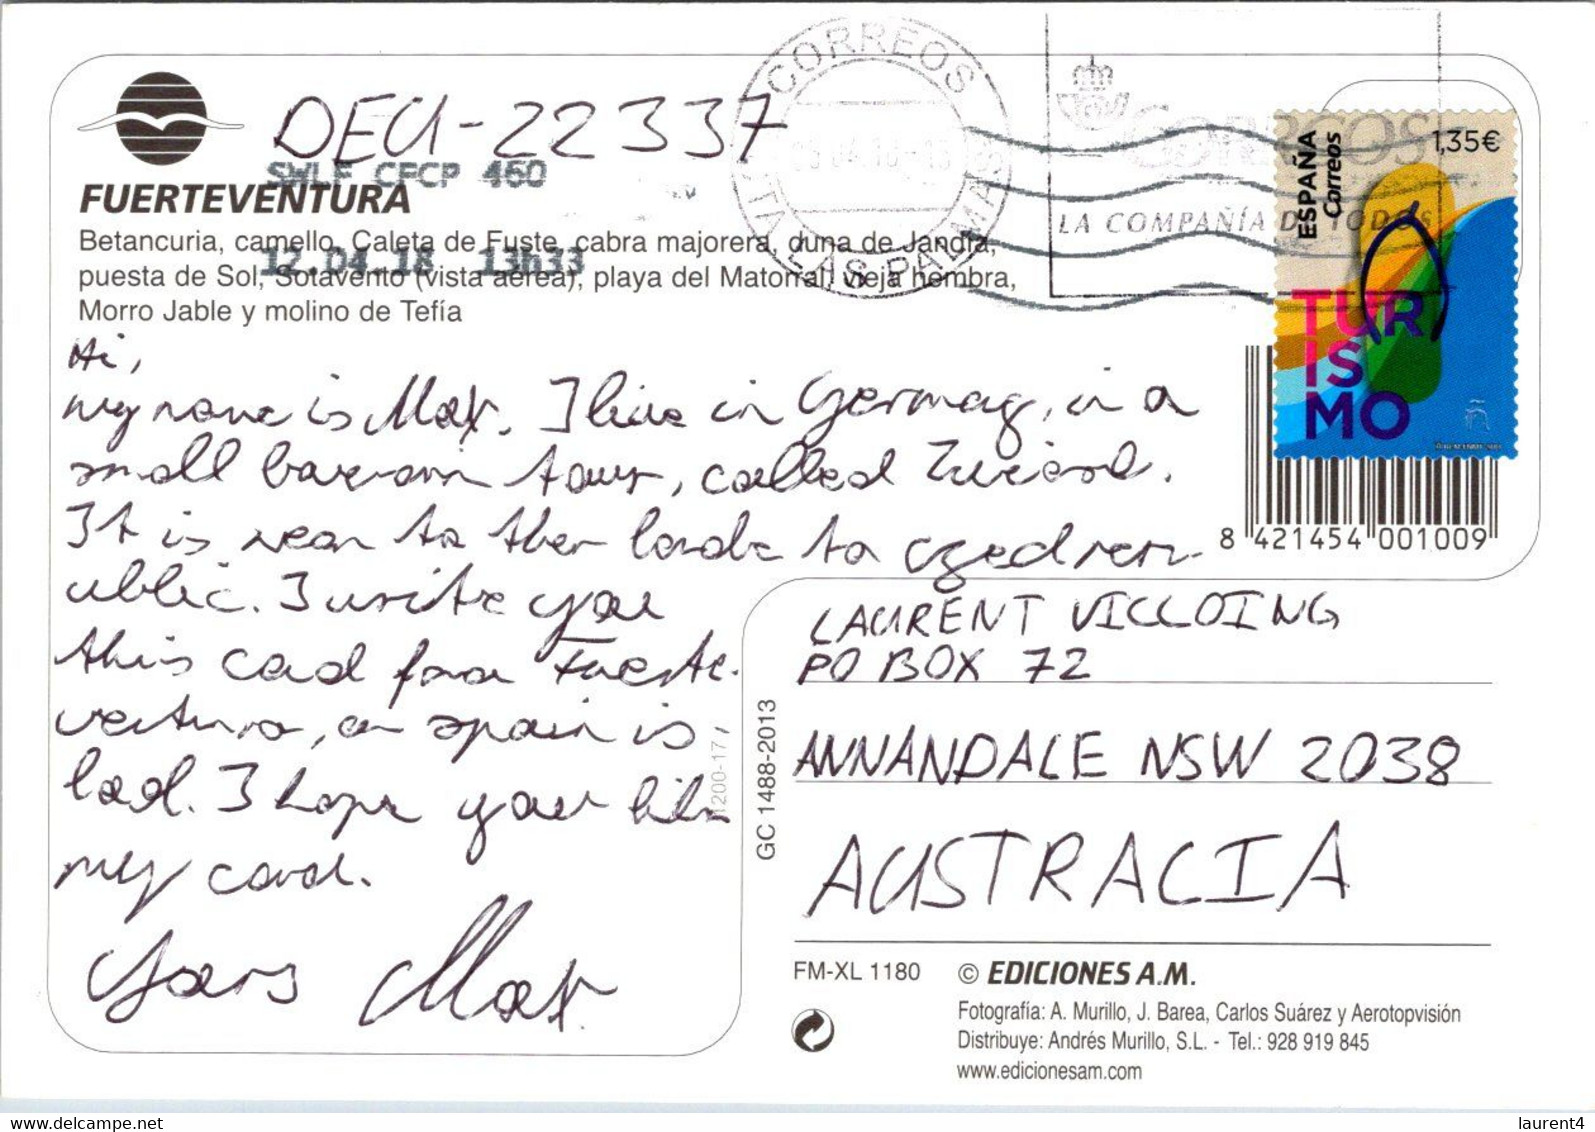 CORREOS
DEU-22337
SWLF CFCP 460
CORREOS
LA COMPAÑÍA DE TODOS
LAS PALMAS
ESPAÑA
Correos
1,35€
TUR
IS
MO
FUERTEVENTURA
Betancuria, camello, Caleta de Fuste, cabra majorera, duna de Jandía,
12.04.18 13h33
puesta de Sol, Sotavento (vista aérea), playa del Matorral, vieja hembra,
Morro Jable y molino de Tefía
Hi,
my name is Max. I live in Germany, in a
small bavarian town, called Zwiesel.
It is near to ther borde to czedrep-
ublic. I write you
this card from Fuerte-
ventura, an spain is-
land. I hope you like
my card.
Yours Max
8 421454 001009
LAURENT VILLOING
PO BOX 72
ANNANDALE NSW 2038
AUSTRALIA
1200-17
GC 1488-2013
FM-XL 1180 © EDICIONES A.M.
Fotografía: A. Murillo, J. Barea, Carlos Suárez y Aerotopvisión
Distribuye: Andrés Murillo, S.L. - Tel.: 928 919 845
www.edicionesam.com
delcampe.net
laurent4